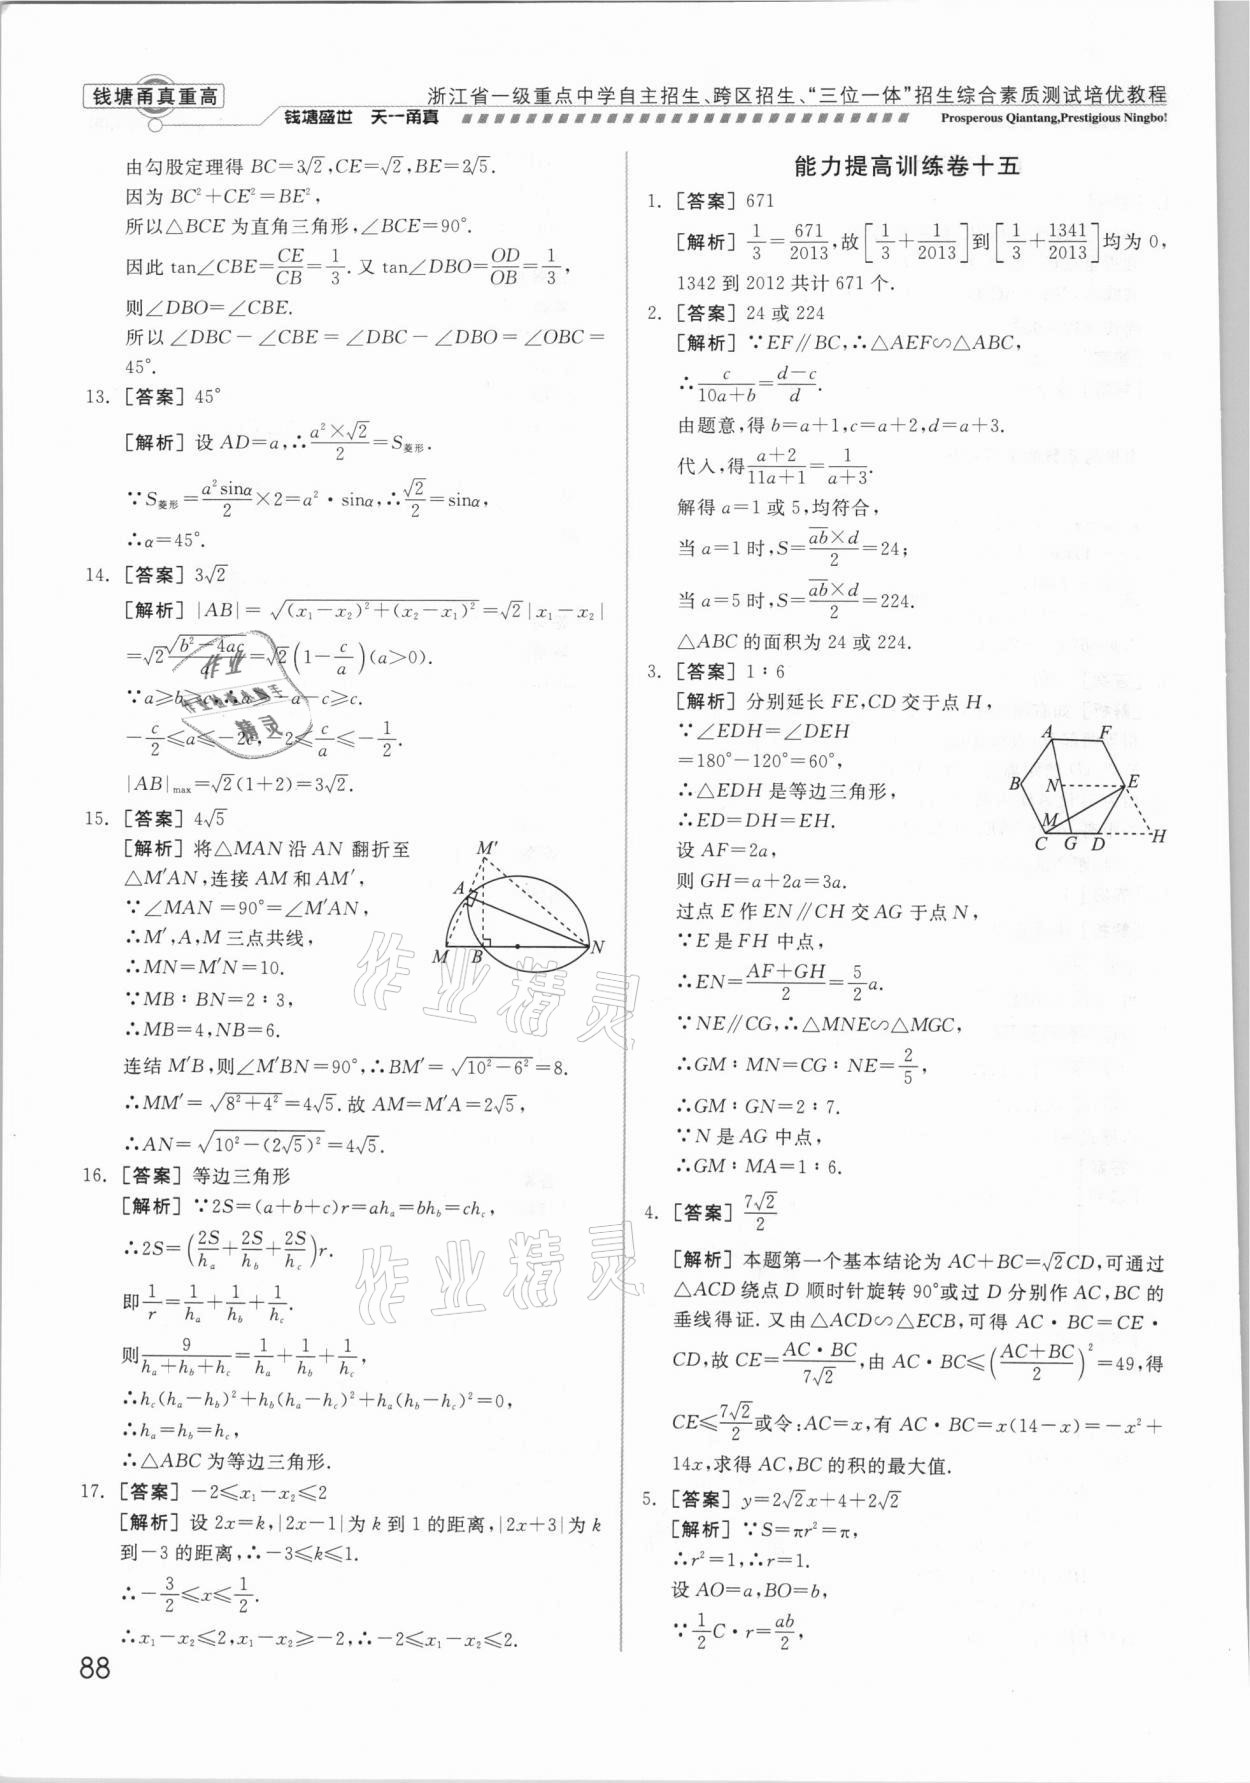 钱塘甬真重高
浙江省一级重点中学自主招生、跨区招生、“三位一体”招生综合素质测试培优教程
钱塘盛世 天一甬真
Prosperous Qiantang,Prestigious Ningbo!
由勾股定理得 BC=3√2,CE=√2,BE=2√5.
因为 BC²+CE²=BE²,
所以△BCE 为直角三角形,∠BCE=90°.
因此 tan∠CBE=CE/CB=1/3.又 tan∠DBO=OD/OB=1/3,
则∠DBO=∠CBE.
所以∠DBC-∠CBE=∠DBC-∠DBO=∠OBC=
45°.
13.［答案］45°
［解析］设 AD=a,∴(a²×√2)/2=S菱形.
∵S菱形=(a²sinα)/2×2=a²·sinα,∴√2/2=sinα,
∴α=45°.
14.［答案］3√2
［解析］|AB|=√((x₁-x₂)²+(x₂-x₁)²)=√2|x₁-x₂|
=√2 √(b²-4ac)/a=√2(1-c/a)(a>0).
∵a≥b≥c,∴a≥-a-c≥c.
-c/2≤a≤-2c,-2≤c/a≤-1/2.
|AB|max=√2(1+2)=3√2.
15.［答案］4√5
［解析］将△MAN 沿 AN 翻折至
△M′AN,连接 AM 和 AM′,
∵∠MAN=90°=∠M′AN,
∴M′,A,M 三点共线,
∴MN=M′N=10.
∵MB∶BN=2∶3,
∴MB=4,NB=6.
M′
A
M
B
N
连结 M′B,则∠M′BN=90°,∴BM′=√(10²-6²)=8.
∴MM′=√(8²+4²)=4√5.故 AM=M′A=2√5,
∴AN=√(10²-(2√5)²)=4√5.
16.［答案］等边三角形
［解析］∵2S=(a+b+c)r=ahₐ=bh_b=ch_c,
∴2S=(2S/hₐ+2S/h_b+2S/h_c)r.
即1/r=1/hₐ+1/h_b+1/h_c.
则9/(hₐ+h_b+h_c)=1/hₐ+1/h_b+1/h_c,
∴h_c(hₐ-h_b)²+h_b(hₐ-h_c)²+hₐ(h_b-h_c)²=0,
∴hₐ=h_b=h_c,
∴△ABC 为等边三角形.
17.［答案］-2≤x₁-x₂≤2
［解析］设 2x=k,|2x-1|为 k 到 1 的距离,|2x+3|为 k
到-3 的距离,∴-3≤k≤1.
∴-3/2≤x≤1/2.
∴x₁-x₂≤2,x₁-x₂≥-2,∴-2≤x₁-x₂≤2.
88
能力提高训练卷十五
1.［答案］671
［解析］1/3=671/2013,故[1/3+1/2013]到[1/3+1341/2013]均为 0,
1342 到 2012 共计 671 个.
2.［答案］24 或 224
［解析］∵EF∥BC,∴△AEF∽△ABC,
∴c/(10a+b)=(d-c)/d.
由题意,得 b=a+1,c=a+2,d=a+3.
代入,得(a+2)/(11a+1)=1/(a+3).
解得 a=1 或 5,均符合,
当 a=1 时,S=(a̅b̅×d)/2=24;
当 a=5 时,S=(a̅b̅×d)/2=224.
△ABC 的面积为 24 或 224.
3.［答案］1∶6
［解析］分别延长 FE,CD 交于点 H,
∵∠EDH=∠DEH
=180°-120°=60°,
∴△EDH 是等边三角形,
∴ED=DH=EH.
设 AF=2a,
则 GH=a+2a=3a.
A F
B N E
M
C G D H
过点 E 作 EN∥CH 交 AG 于点 N,
∵E 是 FH 中点,
∴EN=(AF+GH)/2=5/2 a.
∵NE∥CG,∴△MNE∽△MGC,
∴GM∶MN=CG∶NE=2/5,
∴GM∶GN=2∶7.
∵N 是 AG 中点,
∴GM∶MA=1∶6.
4.［答案］7√2/2
［解析］本题第一个基本结论为 AC+BC=√2CD,可通过
△ACD 绕点 D 顺时针旋转 90°或过 D 分别作 AC,BC 的
垂线得证.又由△ACD∽△ECB,可得 AC·BC=CE·
CD,故 CE=(AC·BC)/(7√2),由 AC·BC≤((AC+BC)/2)²=49,得
CE≤7√2/2或令:AC=x,有 AC·BC=x(14-x)=-x²+
14x,求得 AC,BC 的积的最大值.
5.［答案］y=2√2x+4+2√2
［解析］∵S=πr²=π,
∴r²=1,∴r=1.
设 AO=a,BO=b,
∵1/2 C·r=ab/2,
作业精灵
作业精灵